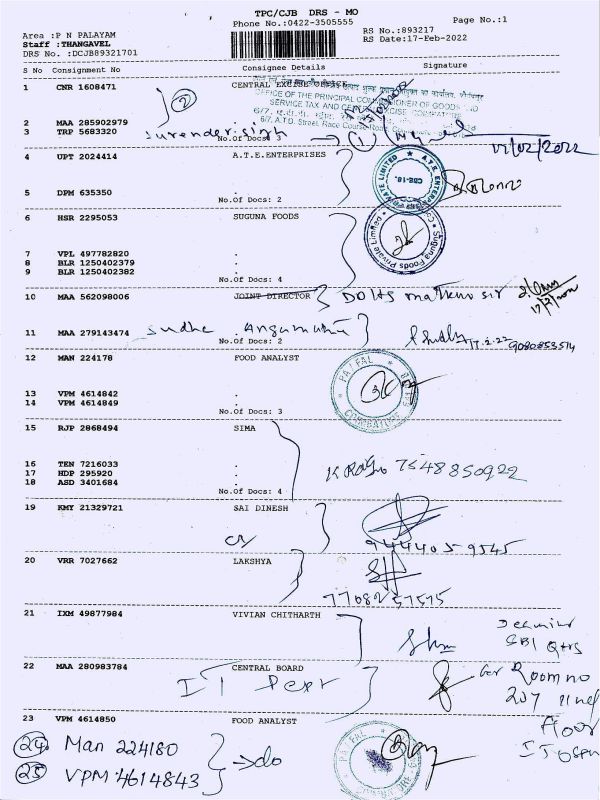 TPC/CJB DRS - MO
Phone No.:0422-3505555
Page No.:1
Area :P N PALAYAM
Staff :THANGAVEL
DRS No. :DCJB89321701
RS No.:893217
RS Date:17-Feb-2022
S No Consignment No Consignee Details Signature
1 CNR 1608471 CENTRAL EXCISE
OFFICE OF THE PRINCIPAL COMMISSIONER OF GOODS AND
SERVICE TAX AND CENTRAL EXCISE COIMBATORE
6/7, A.T.D. Street, Race Course Road,
2 MAA 285902979
3 TRP 5683320
No.Of Docs: 3
Surender singh
17/02/2022
4 UPT 2024414 A.T.E.ENTERPRISES
5 DPM 635350 .
No.Of Docs: 2
A.T.E. ENTERPRISES PRIVATE LIMITED
6 HSR 2295053 SUGUNA FOODS
Suguna Foods Private Limited
7 VPL 497782820 .
8 BLR 1250402379 .
9 BLR 1250402382 .
No.Of Docs: 4
10 MAA 562098006 JOINT DIRECTOR
11 MAA 279143474 .
No.Of Docs: 2
Sudha
17.2.22
9080853514
12 MAN 224178 FOOD ANALYST
13 VPM 4614842 .
14 VPM 4614849 .
No.Of Docs: 3
15 RJP 2868494 SIMA
16 TEN 7216033 .
17 HDP 295920 .
18 ASD 3401684 .
No.Of Docs: 4
7548850922
19 KMY 21329721 SAI DINESH
9444059545
20 VRR 7027662 LAKSHYA
7708257575
21 IXM 49877984 VIVIAN CHITHARTH
SBI Qtrs
22 MAA 280983784 CENTRAL BOARD
IT Dept
Room no
207 IInd
Floor
23 VPM 4614850 FOOD ANALYST
24 Man 224180
25 VPM 4614843
do